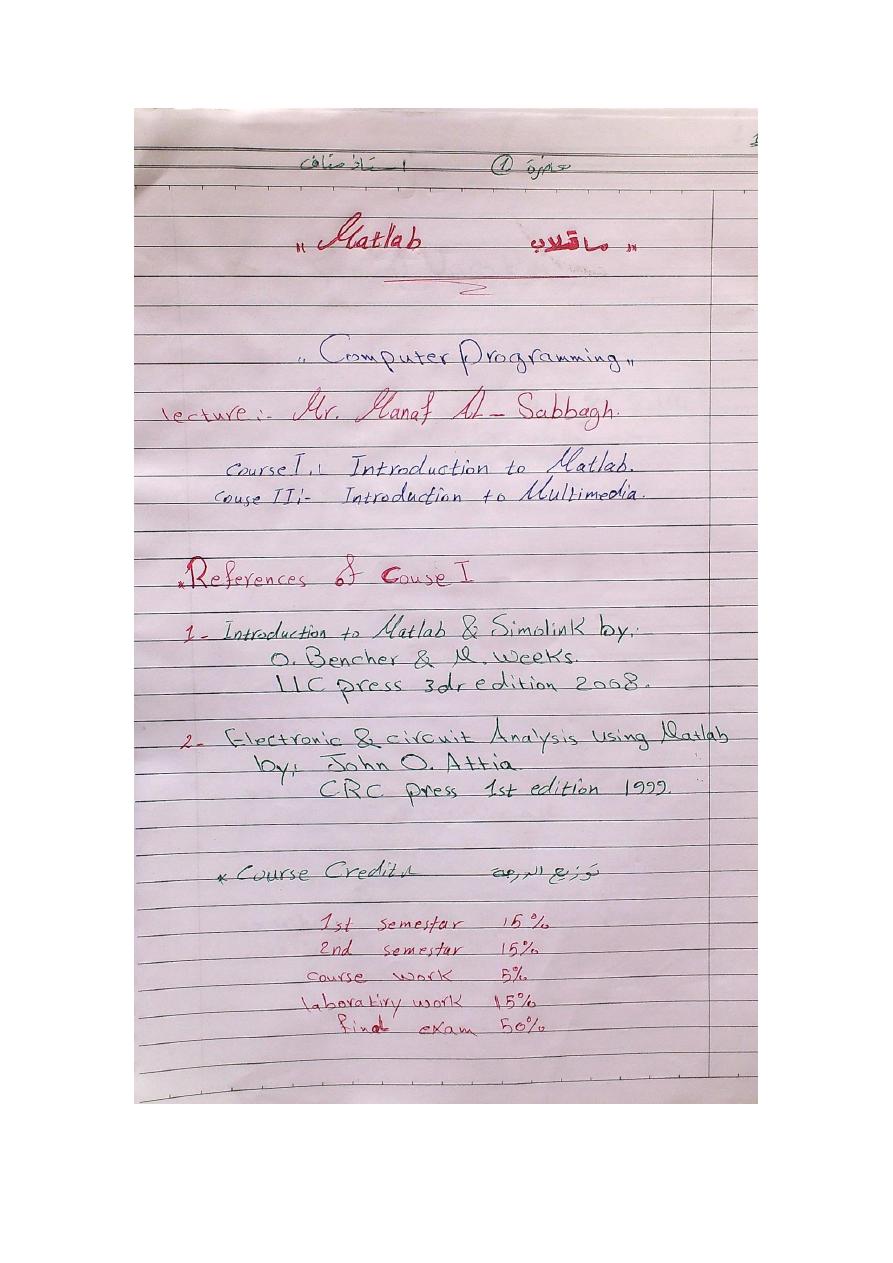 1
محاضرة ① استاذ مناف
" Matlab ماتلاب "
" Computer Programming "
lecture :- Mr. Manaf Al - Sabbagh.
Course I :. Introduction to Matlab.
Couse II :- Introduction to Multimedia.
* References of Couse I
1 - Introduction to Matlab & Simolink by :
O. Bencher & M. Weeks.
LLC press 3dr edition 2008.
2 - Electronic & circuit Analysis using Matlab
by : John O. Attia
CRC press 1st edition 1999.
* Course Credit توزيع الدرجة
1st semestar 15%
2nd semestar 15%
course work 5%
laboratiry work 15%
final exam 50%